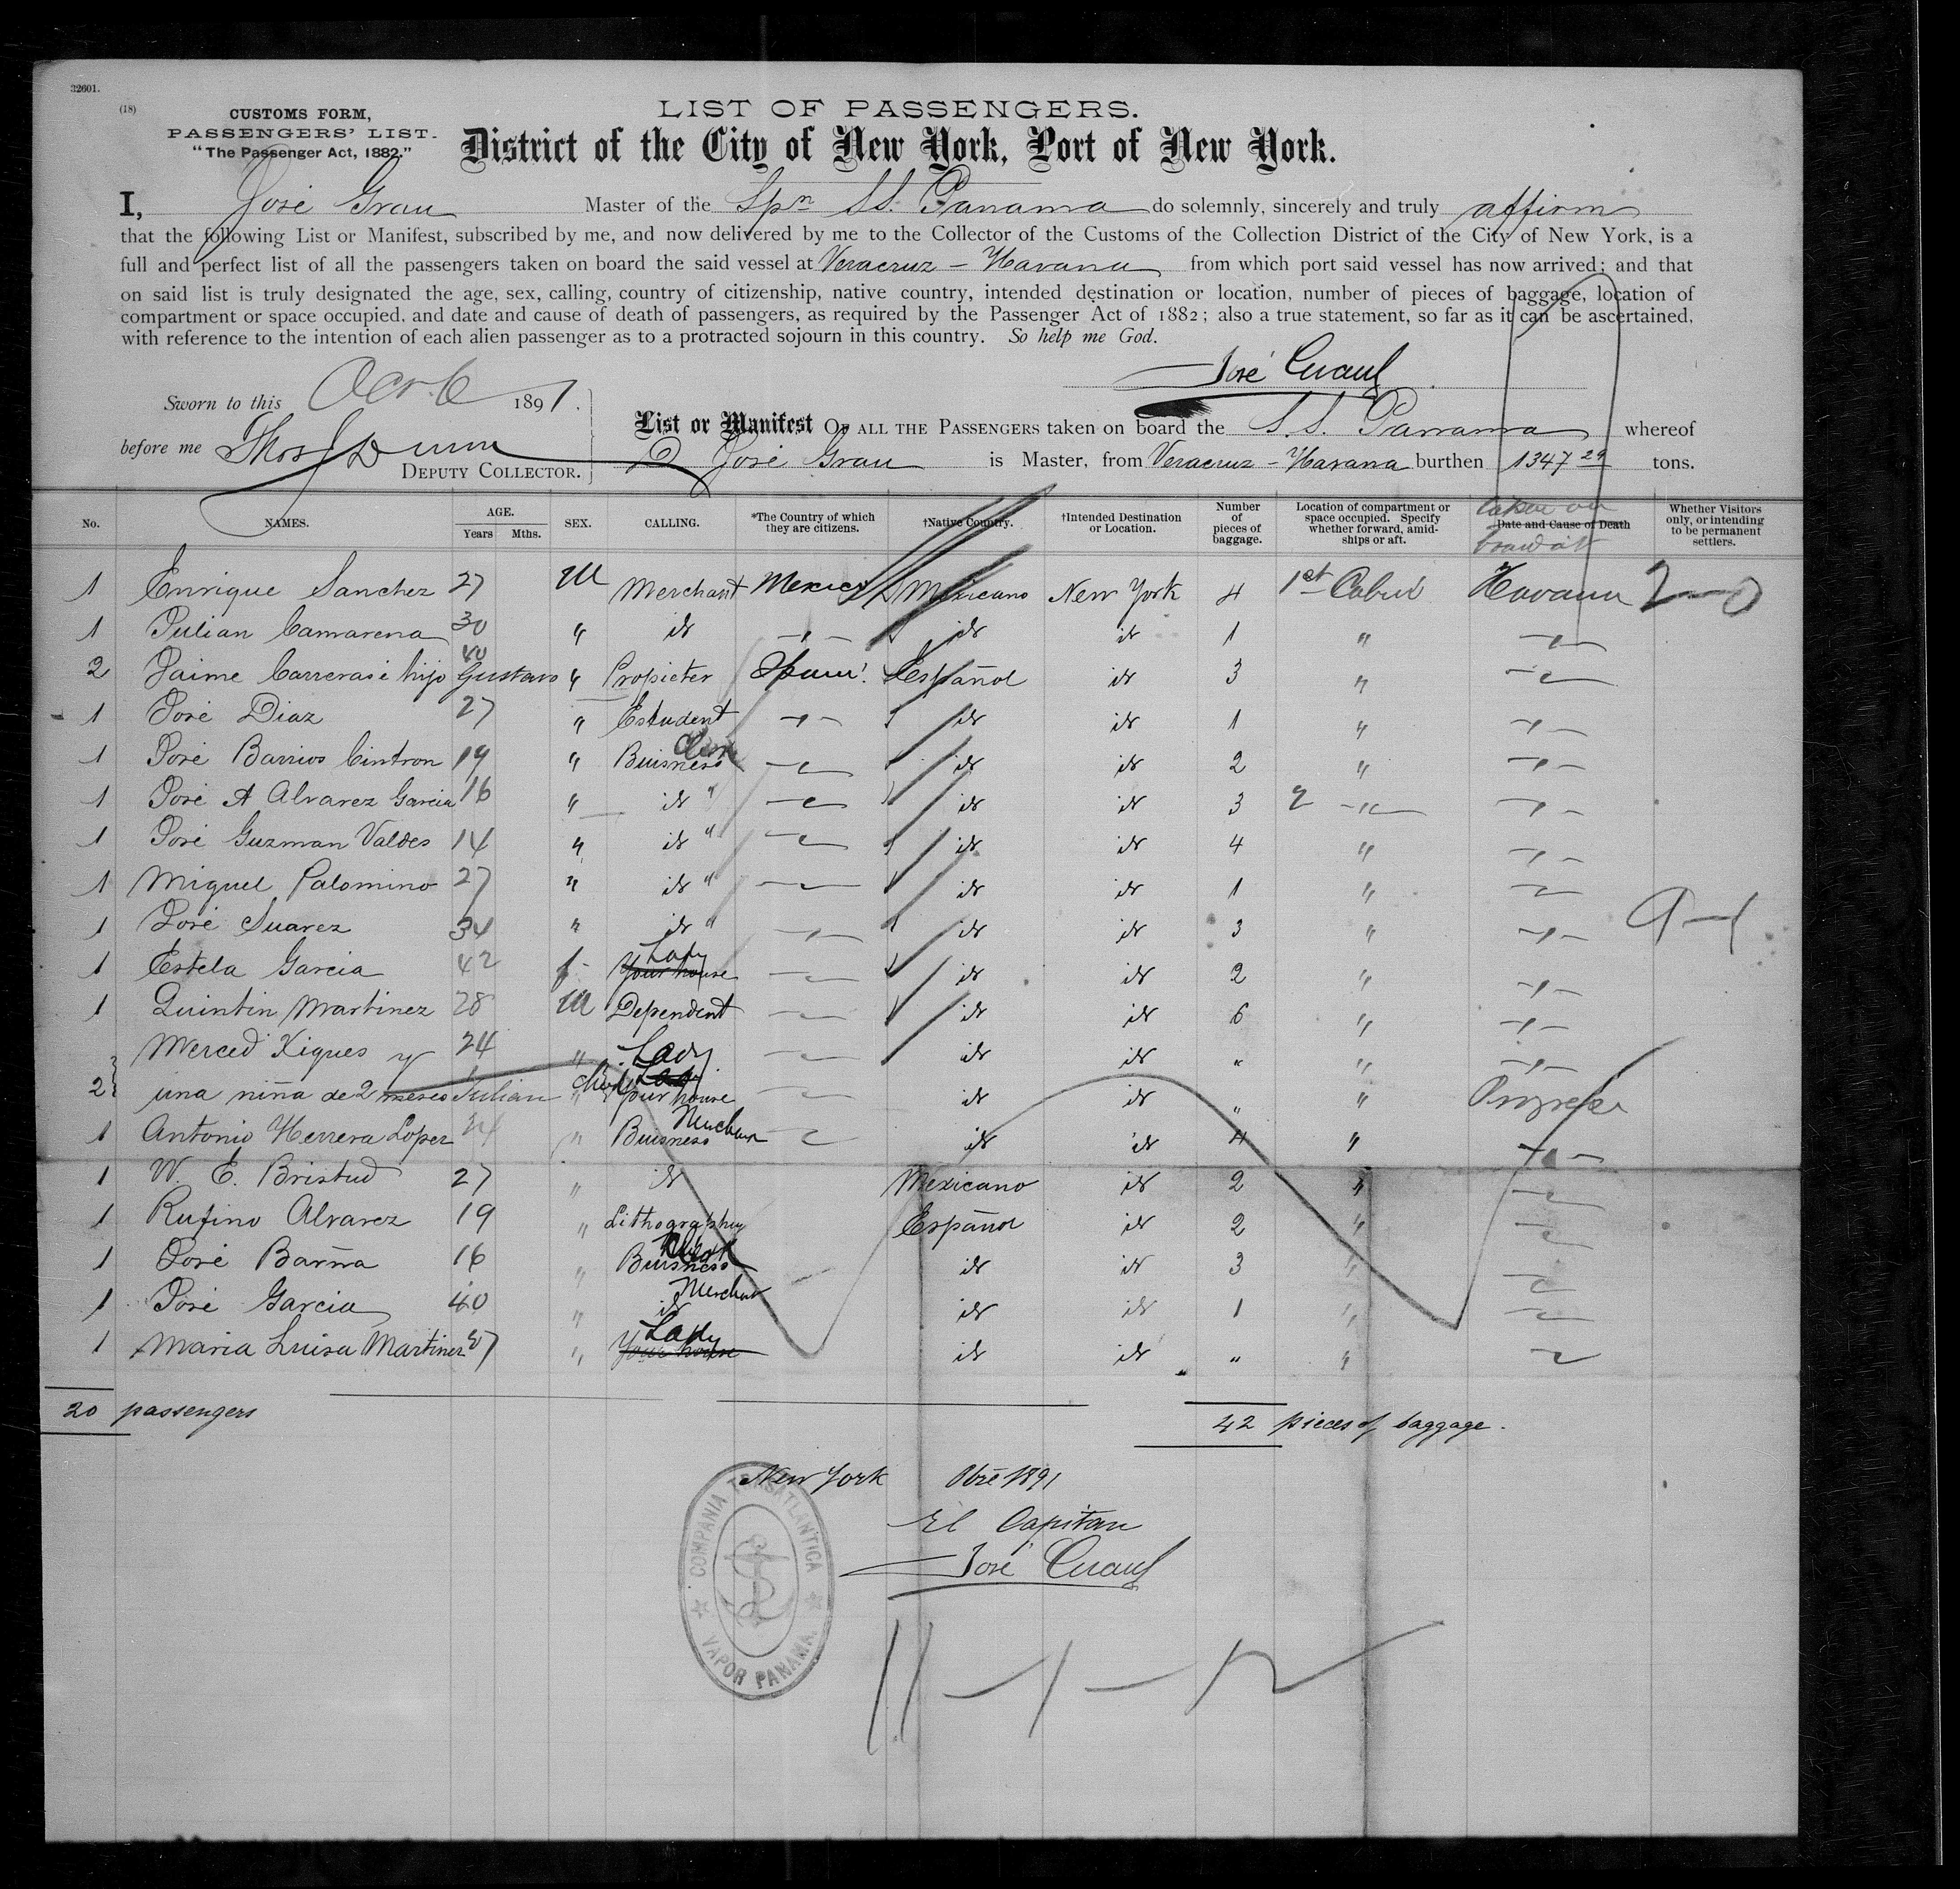 32601.
(18)
CUSTOMS FORM,
PASSENGERS' LIST.
"The Passenger Act, 1882."
LIST OF PASSENGERS.
District of the City of New York, Port of New York.
I, José Grau Master of the Spn SS. Panama do solemnly, sincerely and truly affirm
that the following List or Manifest, subscribed by me, and now delivered by me to the Collector of the Customs of the Collection District of the City of New York, is a
full and perfect list of all the passengers taken on board the said vessel at Veracruz - Havana from which port said vessel has now arrived; and that
on said list is truly designated the age, sex, calling, country of citizenship, native country, intended destination or location, number of pieces of baggage, location of
compartment or space occupied, and date and cause of death of passengers, as required by the Passenger Act of 1882; also a true statement, so far as it can be ascertained,
with reference to the intention of each alien passenger as to a protracted sojourn in this country. So help me God.
José Grau
Sworn to this Oct 6 1891.
before me Thos J Dunn
DEPUTY COLLECTOR.
List or Manifest OF ALL THE PASSENGERS taken on board the S.S. Panama whereof
D José Grau is Master, from Veracruz - Havana burthen 1347 29 tons.
No. NAMES. AGE. Years Mths. SEX. CALLING. *The Country of which they are citizens. †Native Country. †Intended Destination or Location. Number of pieces of baggage. Location of compartment or space occupied. Specify whether forward, amidships or aft. Date and Cause of Death Whether Visitors only, or intending to be permanent settlers.
taken on board at
1 Enrique Sanchez 27 M Merchant Mexico Mexicano New York 4 1st Cabin Havana
1 Julian Camarena 30 " id id id 1 "
2 Jaime Carreras é hijo Gustavo 40 " Propieter Spain Español id 3 "
1 José Diaz 27 " Estudent id id 1 "
1 José Barrios Cintron 19 " Buisness Clerk id id 2 "
1 José A Alvarez Garcia 16 " id " id id 3 2
1 José Guzman Valdes 14 " id " id id 4 "
1 Miguel Palomino 27 " id " id id 1 "
1 José Suarez 34 " id " id id 3 "
1 Estela Garcia 42 f Your house Lady id id 2 "
1 Quintin Martinez 28 M Dependent id id 6 "
Merced Xiques y 24 " Lady id id " "
2 una niña de 2 meses Julian " Child Your house id id " " Progreso
1 Antonio Herrera Lopez 34 " Buisness Merchant id id 4 "
1 W. E. Bristud 27 " id Mexicano id 2 "
1 Rufino Alvarez 19 " Lithography Español id 2 "
1 José Barña 16 " Buisness Clerk id id 3 "
1 José Garcia 40 " id Merchant id id 1 "
1 Maria Luisa Martinez 27 " Your house Lady id id " "
20 passengers
42 pieces of baggage.
New York Obre 1891
El Capitan
José Grau
COMPAÑIA TRASATLANTICA
VAPOR PANAMA